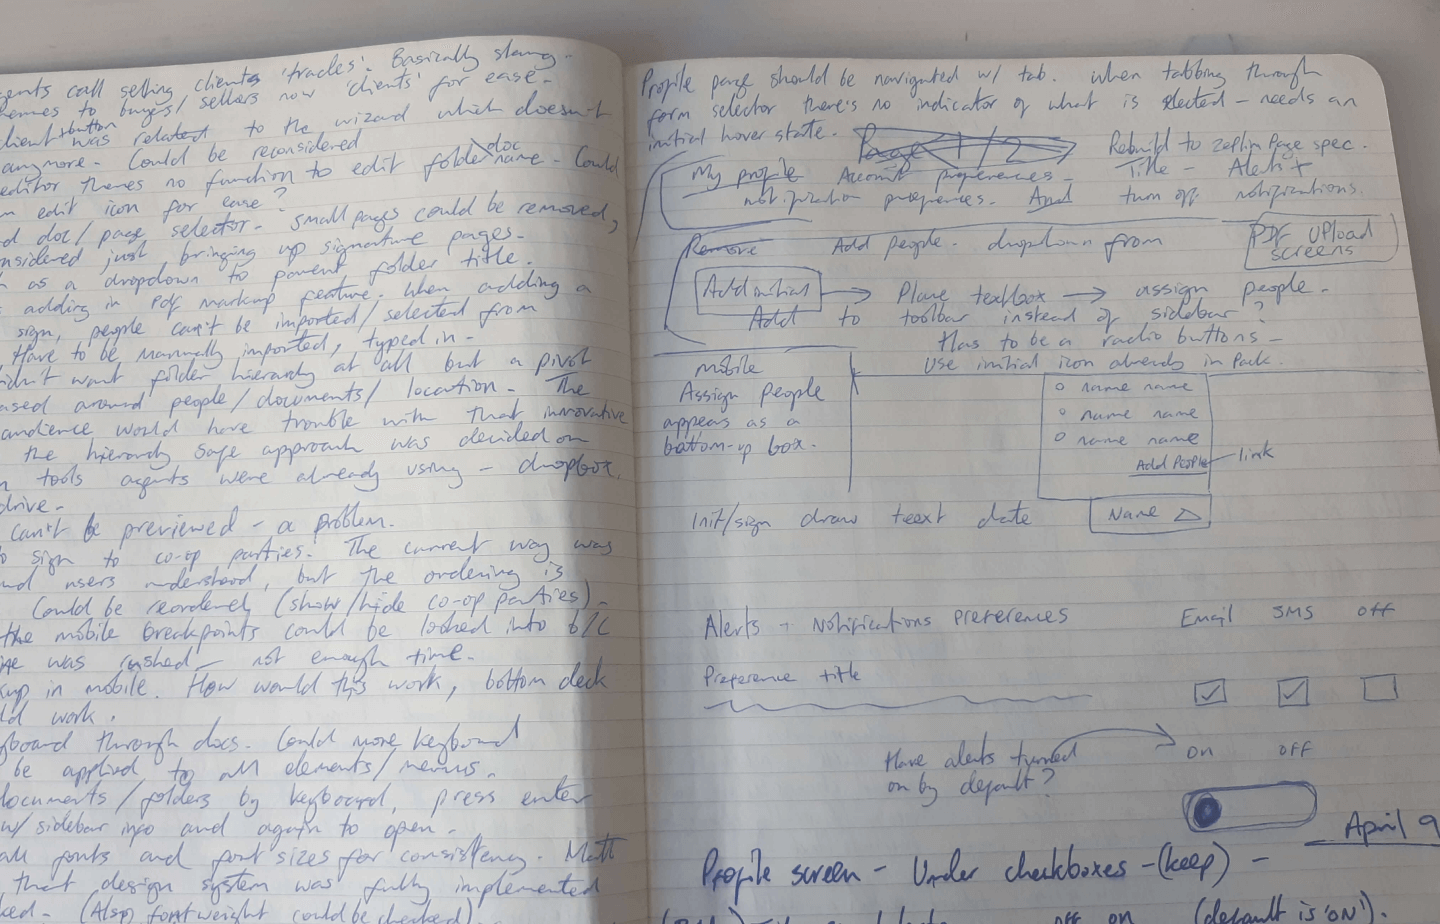 gents call selling clients 'trades'. Basically slang -
to buyers/sellers now 'clients' for ease -
client button was related to the wizard which doesn't
anymore - Could be reconsidered
editor theres no function to edit folder doc name - Could
n edit icon for ease?
d doc/page selector - small pages could be removed,
nsidered just bringing up signature pages -
as a dropdown to parent folder title.
adding in Pdf markup feature. When adding a
sign, people can't be imported/selected from
Have to be manually imported, typed in -
didn't want folder hierarchy at all but a pivot
ased around people/documents/location - The
audience would have trouble with that innovative
the hierarchy safe approach was decided on
tools agents were already using - dropbox,
drive -
can't be previewed - a problem.
o sign to co-op parties. The current way was
nd users understood, but the ordering is
Could be reordered (show/hide co-op parties) -
the mobile breakpoints could be looked into b/c
was rushed - not enough time.
kup in mobile. How would this work, bottom deck
ld work.
yboard through docs. Could more keyboard
be applied to all elements/menus.
documents/folders by keyboard, press enter
w/ sidebar info and again to open -
all fonts and font sizes for consistency - Matt
that design system was fully implemented
ked - (Also font weight could be checked)
Profile page should be navigated w/ tab. When tabbing through
form selector there's no indicator of what is selected - needs an
initial hover state. Page 1/2 Rebuild to zeplin Page spec.
My profile Account preferences - Title - Alerts +
notification preferences. And turn off notifications.
Remove Add people - dropdown from PDF Upload
screens
Add initial → Place textbox → assign people -
Add to toolbar instead of sidebar?
Has to be a radio buttons -
Use initial icon already in Pack.
mobile
Assign People
appears as a
bottom-up box -
o name name
o name name
o name name
Add People - link
Name △
Init/sign draw teext date
Alerts + Notifications Preferences Email SMS Off
Preference title
Have alerts turned
on by default?
on off
April 9
Profile screen - Under checkboxes - (keep) -
off on (default is 'ON').